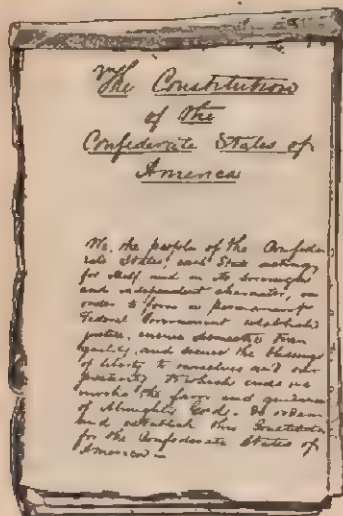 The Constitution
of the
Confederate States of
America
We, the people of the Confede-
rate States, each State acting
for itself and in its sovereign
and independent character, in
order to form a permanent
Federal Government establish
justice, insure domestic tran
quility, and secure the blessings
of liberty to ourselves and our
posterity to which ends we
invoke the favor and guidance
of Almighty God. do ordain
and establish this Constitution
for the Confederate States of
America—